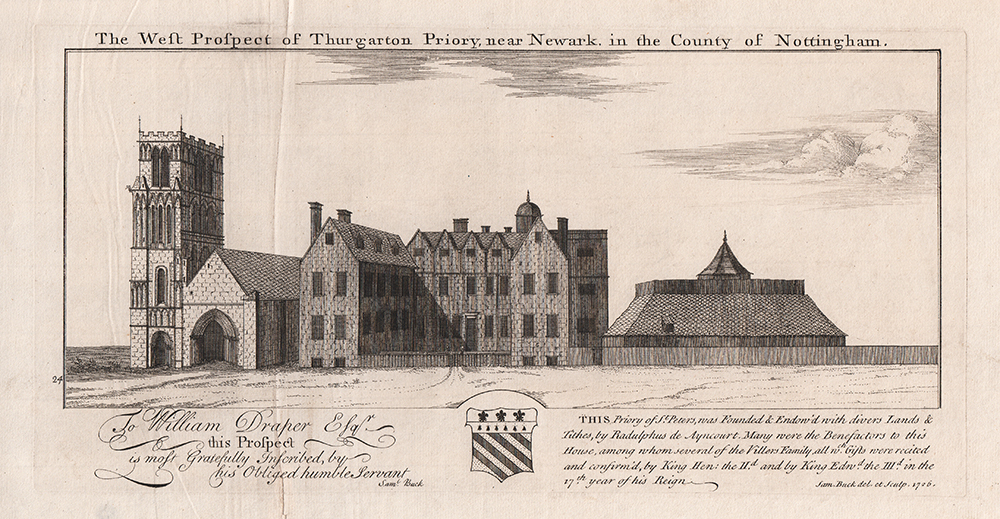 The Weſt Proſpect of Thurgarton Priory, near Newark. in the County of Nottingham.
24
To William Draper Eſqr.
this Proſpect
is moſt Gratefully Inſcribed, by
his Obliged humble Servant
Saml. Buck
THIS Priory of St. Peters, was Founded & Endow'd with divers Lands &
Tithes, by Radulphus de Ayncourt. Many were the Benefactors to this
House, among whom several of the Villers Family, all wch. Gifts were recited
and confirm'd, by King Hen: the IId. and by King Edwd. the IIId. in the
17th year of his Reign
Sam. Buck del. et Sculp. 1726.